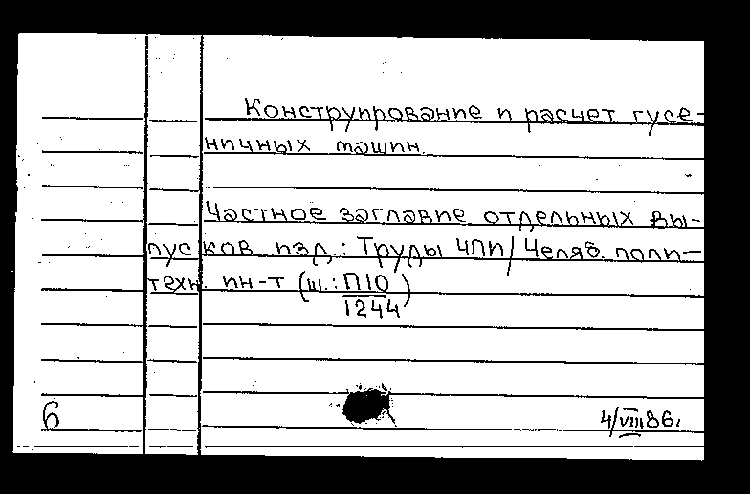 Конструирование и расчет гусе-
ничных машин.
Частное заглавие отдельных вы-
пусков изд.: Труды ЧПИ/Челяб. поли-
техн. ин-т (ш.: П10
1244)
6
4/VIII 86г.